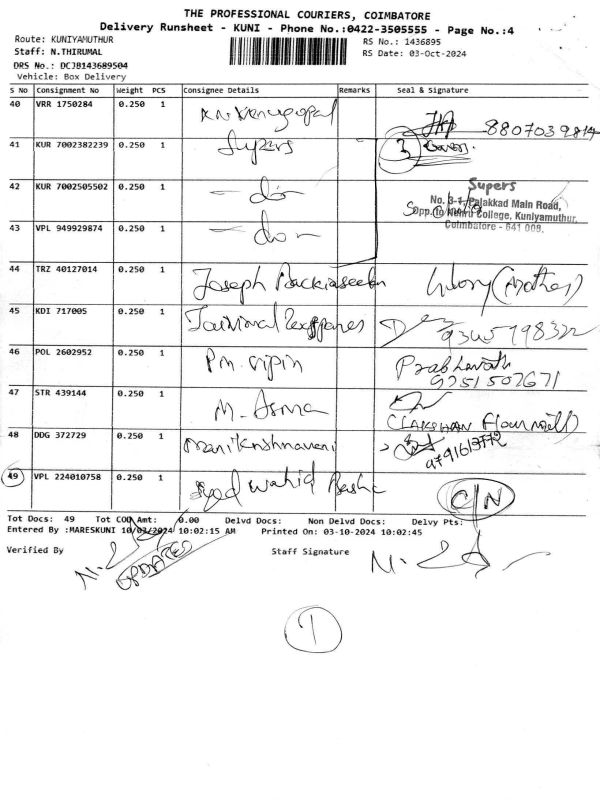 THE PROFESSIONAL COURIERS, COIMBATORE
Delivery Runsheet - KUNI - Phone No.:0422-3505555 - Page No.:4
Route: KUNIYAMUTHUR
RS No.: 1436895
Staff: N.THIRUMAL
RS Date: 03-Oct-2024
DRS No.: DCJB143689504
Vehicle: Box Delivery
S No Consignment No Weight PCS Consignee Details Remarks Seal & Signature
40 VRR 1750284 0.250 1 K.N. Venugopal 8807039814
41 KUR 7002382239 0.250 1 Supers 3
42 KUR 7002505502 0.250 1 - do -
Supers
No. 3-1, Palakkad Main Road,
Opp. to Nehru College, Kuniyamuthur,
Coimbatore - 641 008.
43 VPL 949929874 0.250 1 - do -
44 TRZ 40127014 0.250 1 Joseph (Mother)
45 KDI 717005 0.250 1
46 POL 2602952 0.250 1 P.M. Vipin
9251507671
47 STR 439144 0.250 1 M. Asma
(LAKSHAN Flour mill)
48 DDG 372729 0.250 1 Manikrishnaveni
49 VPL 224010758 0.250 1 Syed Wahid Basha C/N
Tot Docs: 49 Tot COD Amt: 0.00 Delvd Docs: Non Delvd Docs: Delvy Pts:
Entered By :MARESKUNI 10/03/2024 10:02:15 AM Printed On: 03-10-2024 10:02:45
Verified By Staff Signature
UPDATED
1